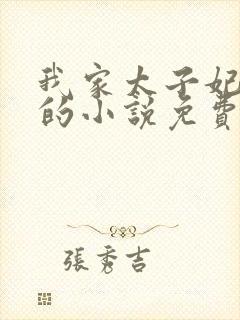 我家太子妃
的小說免費
張秀吉